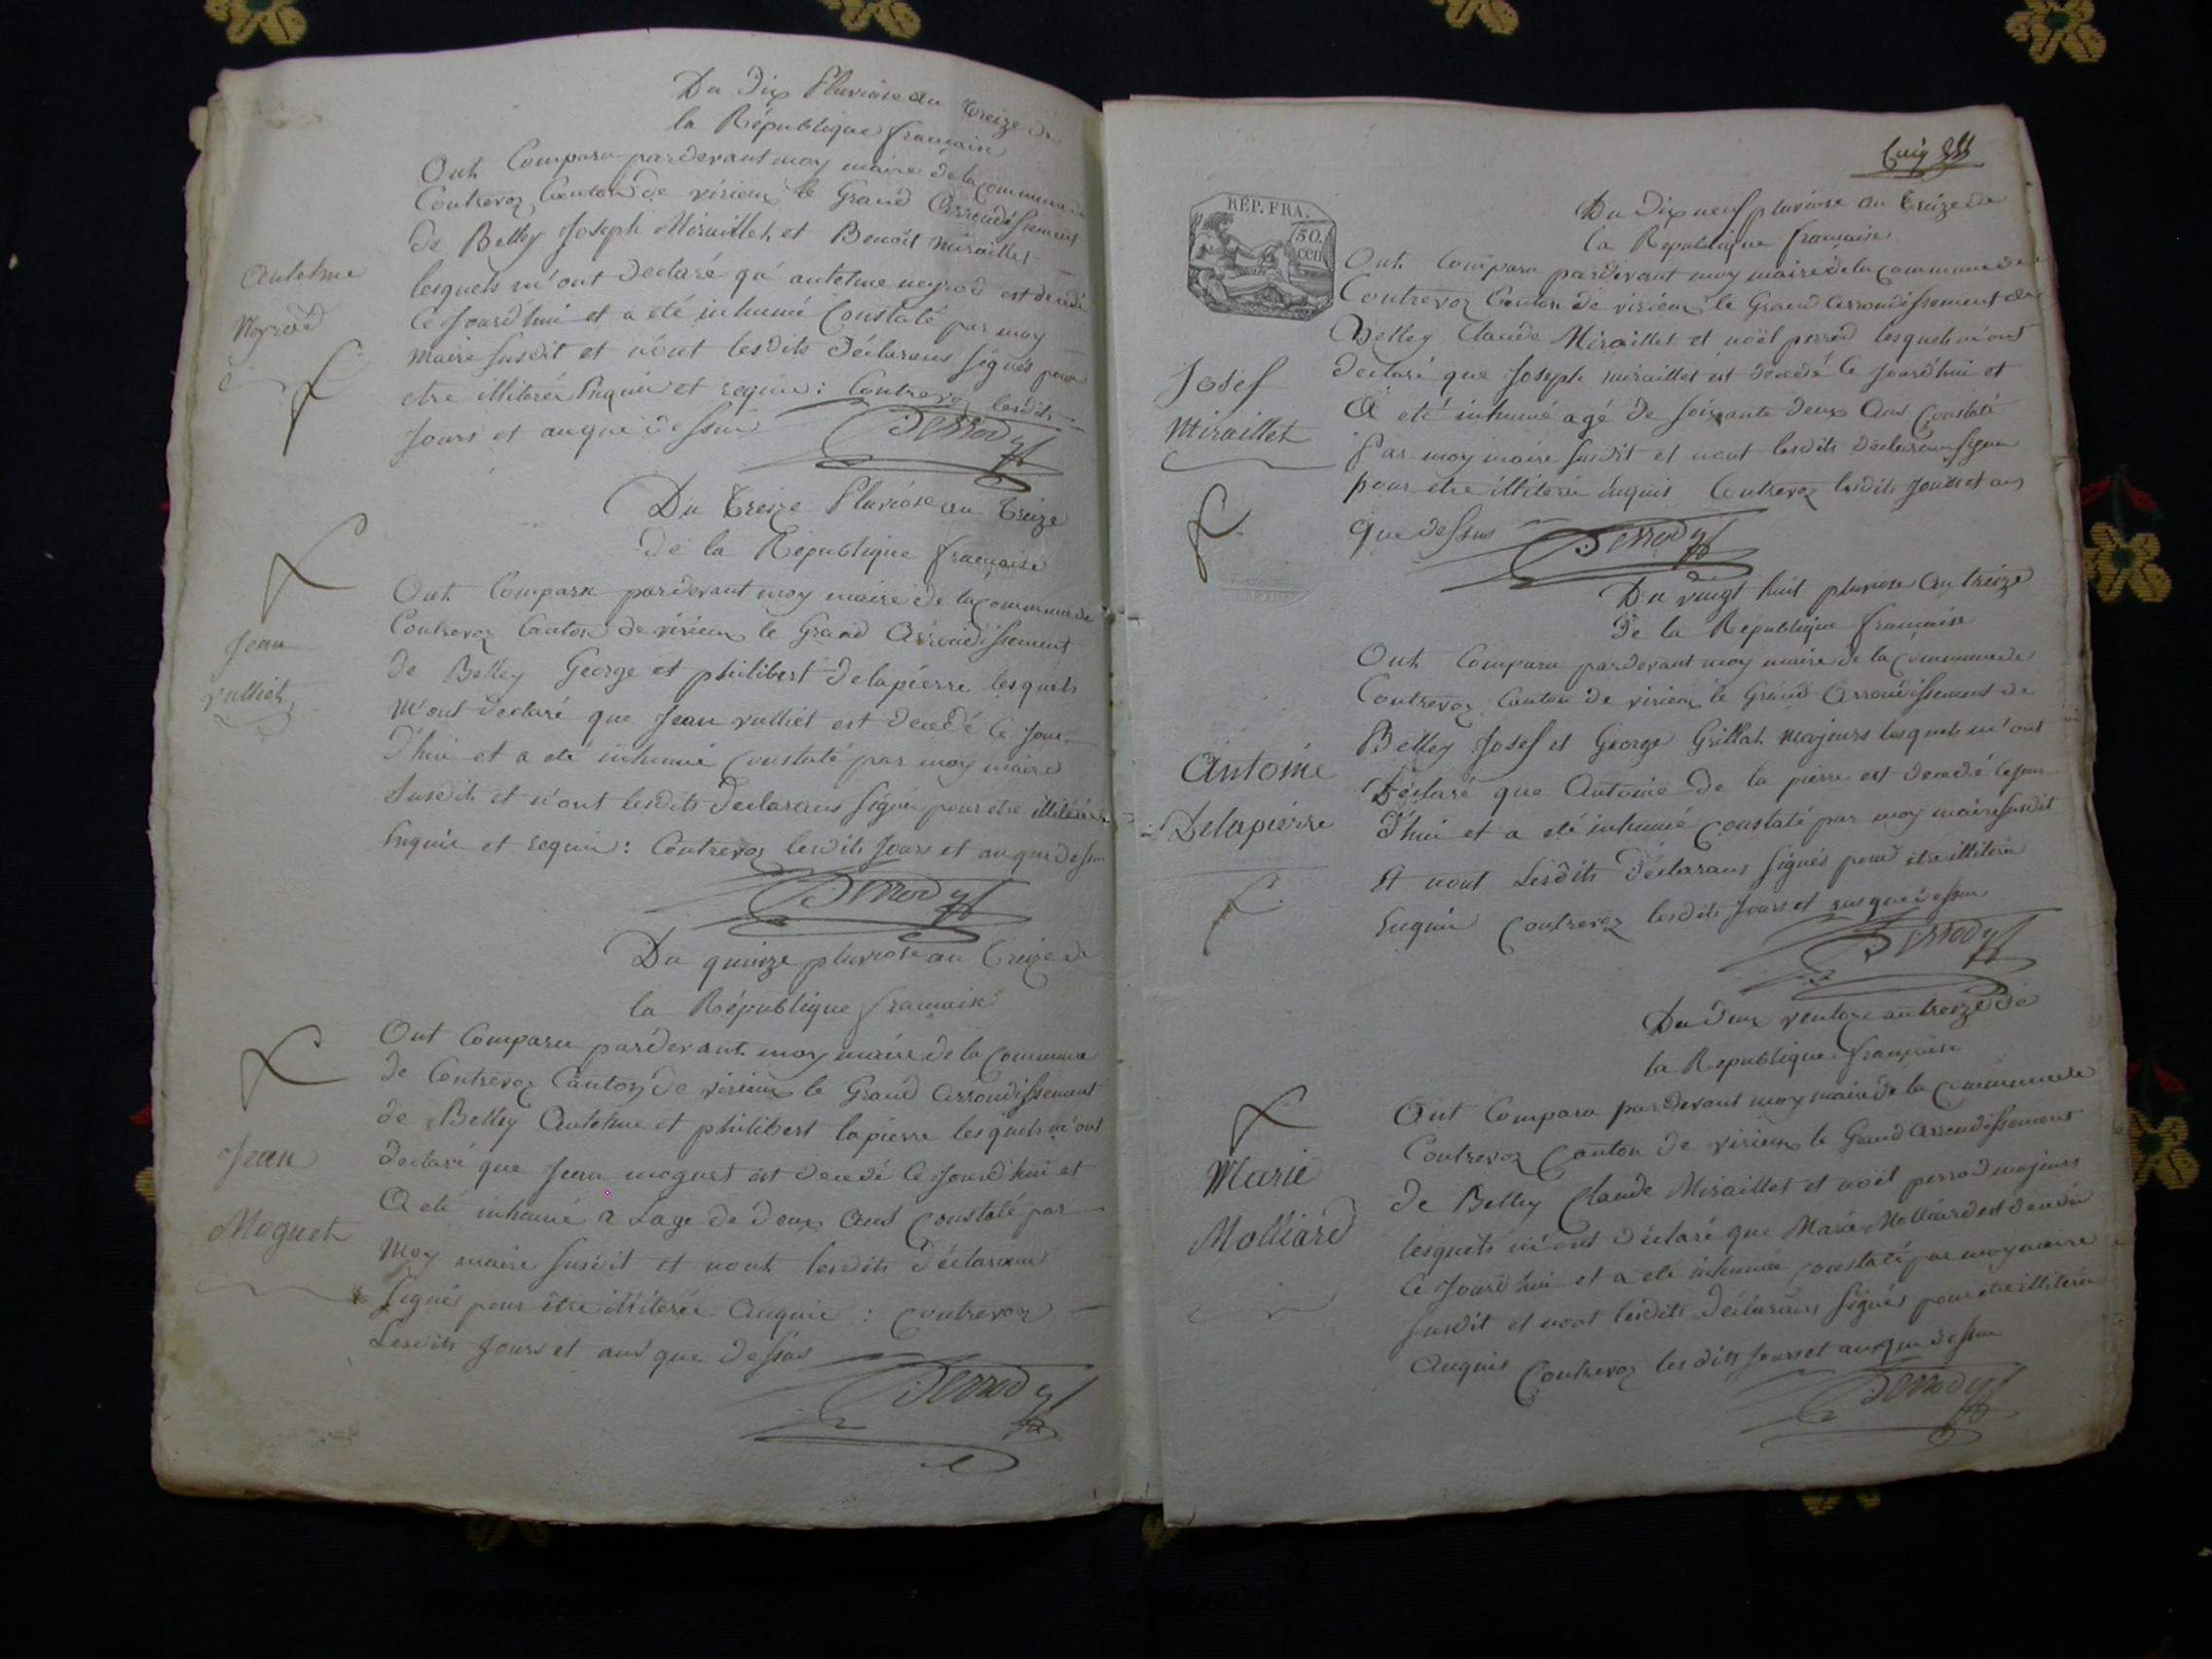 Du dix Pluviose an treize de
la République française
Ont Comparu pardevant moy maire de la commune de
Contrevoz Canton de virieux le Grand Arrondissement
de Belley Joseph Miraillet et Benoit Miraillet
lesquels m'ont declaré qu'antelme neyrod est decedé
Ce Jourd'hui et a eté inhumé Constaté par moy
maire susdit et n'ont lesdits déclarans signés pour
etre illiterés Enquis et requis : Contrevoz lesdits
Jours et an que dessus
Perrod
Antelme
Neyrod
Du Treize Pluviose an Treize
de la République française
Ont Comparu pardevant moy maire de la commune de
Contrevoz Canton de virieux le Grand Arrondissement
de Belley George et philibert delapierre lesquels
m'ont declaré que Jean vulliet est decedé Ce Jour
d'hui et a eté inhumé Constaté par moy maire
Susdit et n'ont lesdits declarans signés pour etre illiterés
Enquis et requis : Contrevoz lesdits Jours et an que dessus
Perrod
Jean
vulliet
Du quinze pluviose an Treize de
la République française
Ont Comparu pardevant moy maire de la Commune
de Contrevoz Canton de virieux le Grand Arrondissement
de Belley Antelme et philibert lapierre lesquels m'ont
declaré que Jean moguet est decedé Ce Jourd'hui et
A eté inhumé a Lage de deux Ans Constaté par
Moy maire susdit et nont lesdits déclarans
signés pour être illiterés Anquis : Contrevoz
Lesdits Jours et ans que dessus
Perrod
Jean
Moguet
RÉP. FRA.
50.
cen
Du Dix neuf pluviose an Treize de
la Republique française
Ont Comparu pardevant moy maire de la commune de
Contrevoz Canton de virieux le Grand Arrondissement de
Belley Claude Miraillet et noël perrod lesquels m'ont
declaré que Joseph miraillet est decedé Ce Jourd'hui et
A eté inhumé agé de soixante deux Ans Constaté
Par moy maire susdit et nont lesdits declarans signés
pour etre illiterés enquis Contrevoz lesdits Jours et ans
que dessus
Perrod
Josef
Miraillet
Du vingt huit pluviose An treize
de la Republique française
Ont Comparu pardevant moy maire de la Commune de
Contrevoz Canton de virieux le Grand Arrondissement de
Belley Josef et George Grillat majeurs lesquels m'ont
Déclaré que Antoine de la pierre est decedé Ce Jour
d'hui et a eté inhumé Constaté par moy maire susdit
Et nont Lesdits déclarans signés pour être illiterés
Enquis Contrevoz lesdits Jours et ans que dessus
Perrod
Antoine
Delapierre
Du deux ventose an treize de
la Republique française
Ont Comparu pardevant moy maire de la Commune de
Contrevoz Canton de virieux le Grand Arrondissement
de Belley Claude Miraillet et noël perrod majeurs
lesquels m'ont déclaré que Marie Molliard est decedée
Ce Jourd'hui et a eté inhumée Constaté par moy maire
susdit et nont lesdits déclarans signés pour etre illiterés
Anquis Contrevoz les dits Jours et an que dessus
Perrod
Marie
Molliard